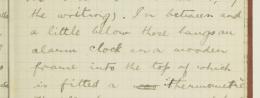 the writing). In between and
a little below those hangs an
alarm clock in a wooden
frame into the top of which
is fitted a thermometre